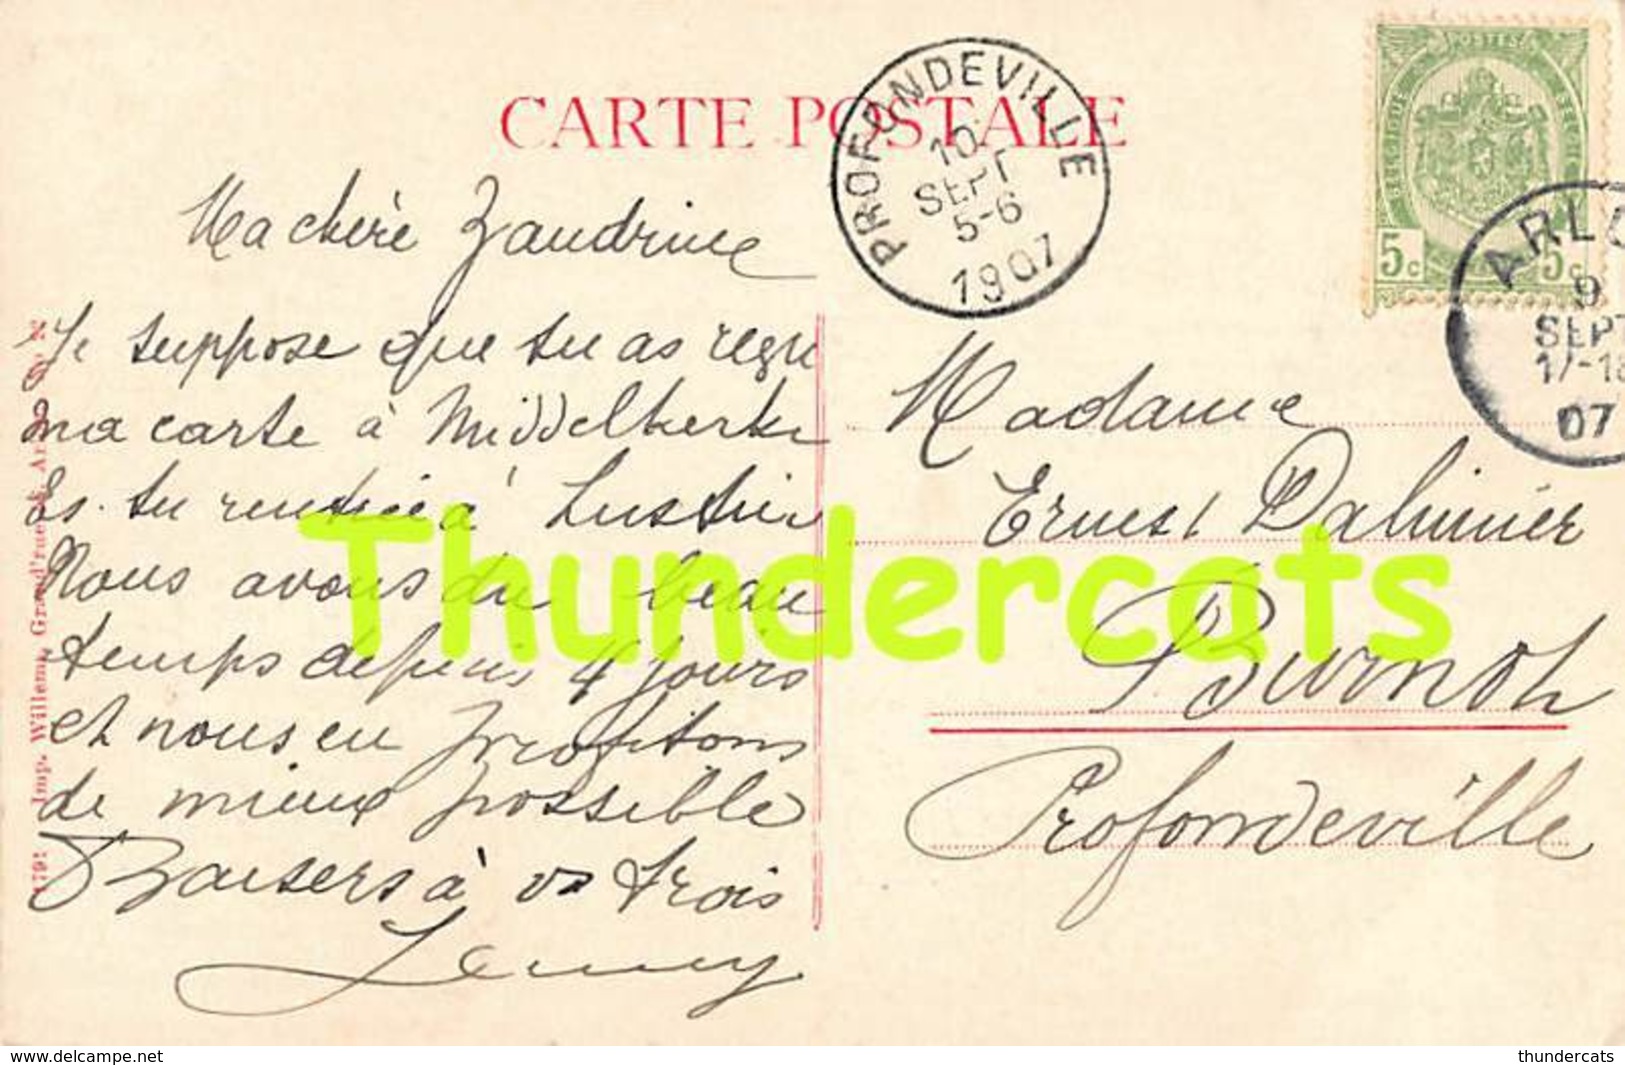 CARTE POSTALE
PROFONDEVILLE
10
SEPT
5-6
1907
POSTES
BELGIQUE
5c 5c
ARLO
9
SEPT
07
Ma chère Zandrine
Je suppose que tu as reçu
ma carte à Middelkerke
Es. tu rentrée à Lustin
Nous avons du beau
temps depuis 4 jours
et nous en profitons
de mieux possible
Baisers à vs trois
Jenny
Madame
Ernest Dalimier
Burnot
Profondeville
Imp. Willems, Grand'rue
Thundercats
www.delcampe.net
thundercats